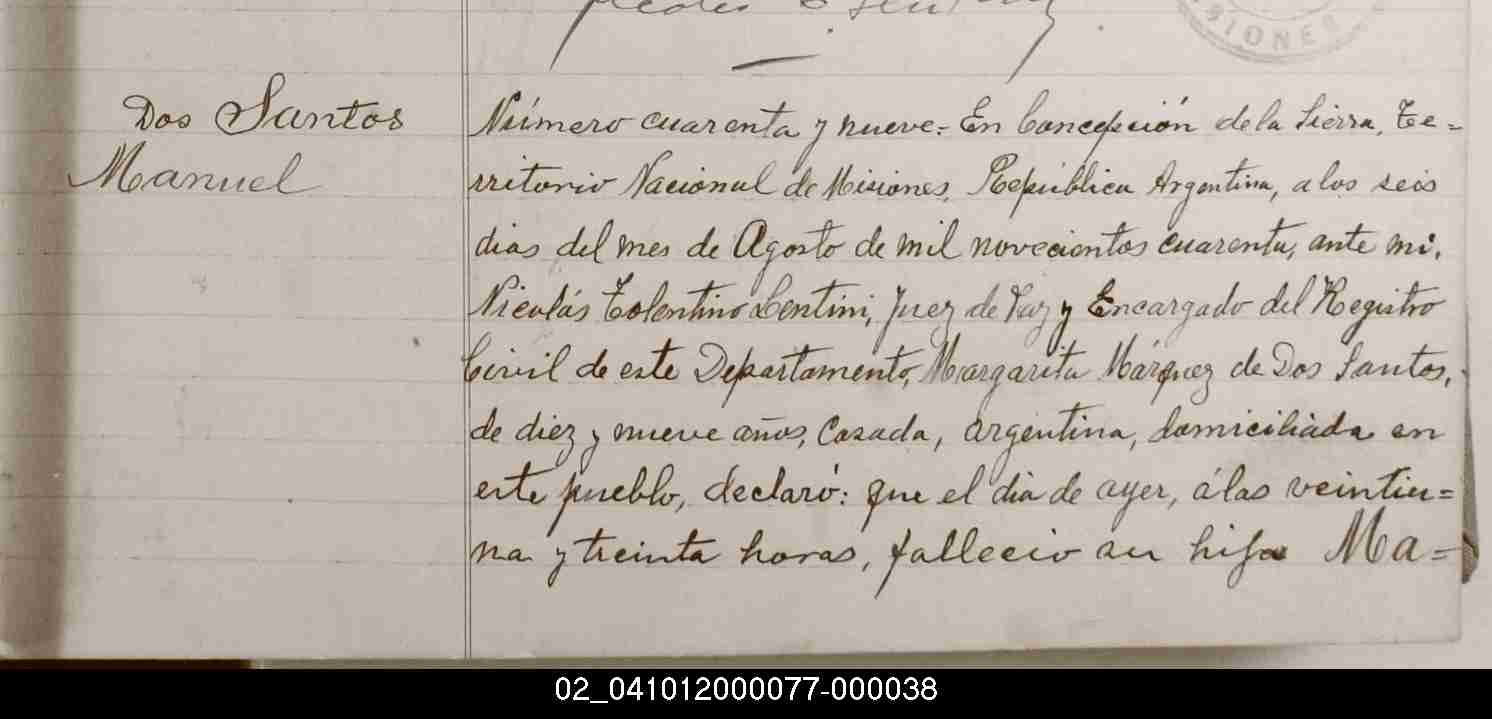 SIONES
Dos Santos
Manuel
Número cuarenta y nueve.= En Concepción de la Sierra, Te=
rritorio Nacional de Misiones, República Argentina, a los seis
dias del mes de Agosto de mil novecientos cuarenta, ante mi,
Nicolás Tolentino Lentini, Juez de Paz y Encargado del Registro
Civil de este Departamento, Margarita Márquez de Dos Santos,
de diez y nueve años, Casada, argentina, domiciliada en
este pueblo, declaró: que el dia de ayer, á las veintiu=
na y treinta horas, falleció su hijo Ma=
02_041012000077-000038